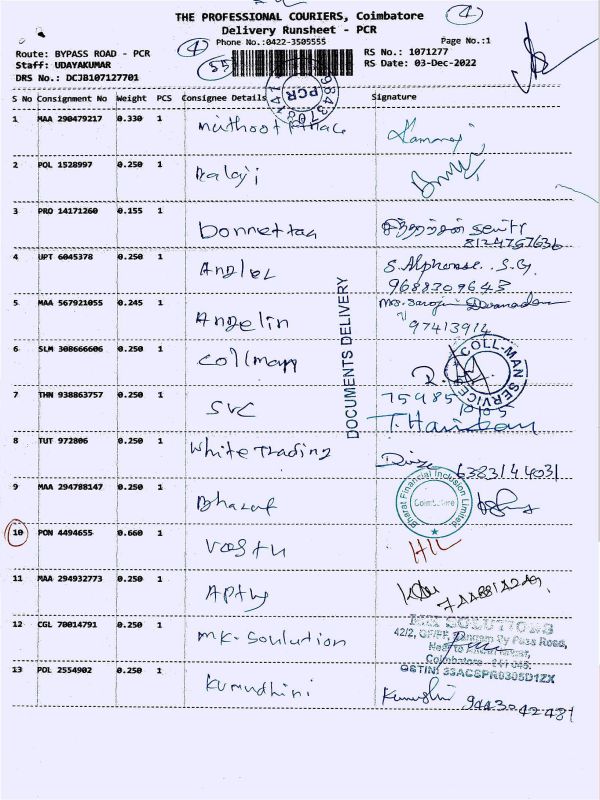 THE PROFESSIONAL COURIERS, Coimbatore
Delivery Runsheet - PCR
Phone No.:0422-3505555
Page No.:1
Route: BYPASS ROAD - PCR
Staff: UDAYAKUMAR
DRS No.: DCJB107127701
4
55
RS No.: 1071277
RS Date: 03-Dec-2022
4
PCR
S No Consignment No Weight PCS Consignee Details Signature
1 MAA 290479217 0.330 1
2 POL 1528997 0.250 1 Balaji
3 PRO 14171260 0.155 1
8124767636
4 UPT 6045378 0.250 1 Angler S. Alphonse. S.G.
9688309643
5 MAA 567921055 0.245 1 Angelin
97413914
DOCUMENTS DELIVERY
6 SLM 308666606 0.250 1 Collmann
COLL-MAN SERVICE
7 THN 938863757 0.250 1 SVC
75985 10105
T. Hariharan
8 TUT 972806 0.250 1 White Trading
6383144031
9 MAA 294788147 0.250 1 Bharat
Bharat Financial Inclusion Limited
Coimbatore
10 PON 4494655 0.660 1 Vasthu
11 MAA 294932773 0.250 1
12 CGL 70014791 0.250 1 MK. Soulution
SOLUTIONS
42/2, GF/FF, Pass Road,
Coimbatore - 641 045.
GSTIN: 33ACSPR0305D1ZX
13 POL 2554902 0.250 1 Kumudhini
9443042481